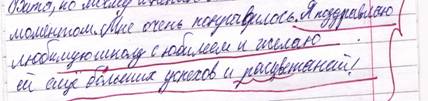 моментом. Мне очень понравилось. Я поздравляю
любимую школу с юбилеем и желаю
ей ещё больших успехов и расцветаний!